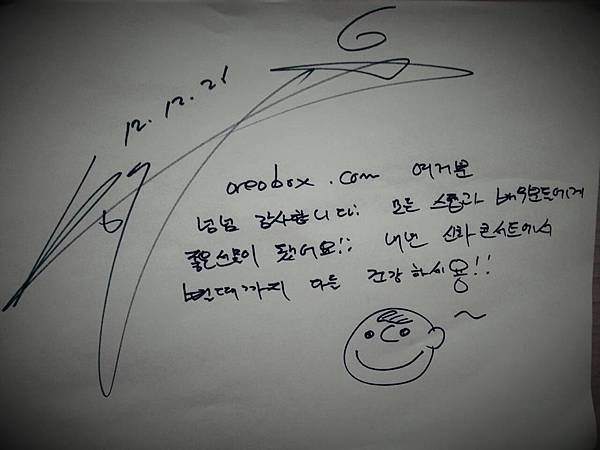 12.12.21
oreobox.com 여러분
넘넘 감사합니다! 모든 스탭과 배우분들에게
좋은선물이 됐어요!! 내년 신화콘서트에서
뵐때까지 다들 건강하시용!!